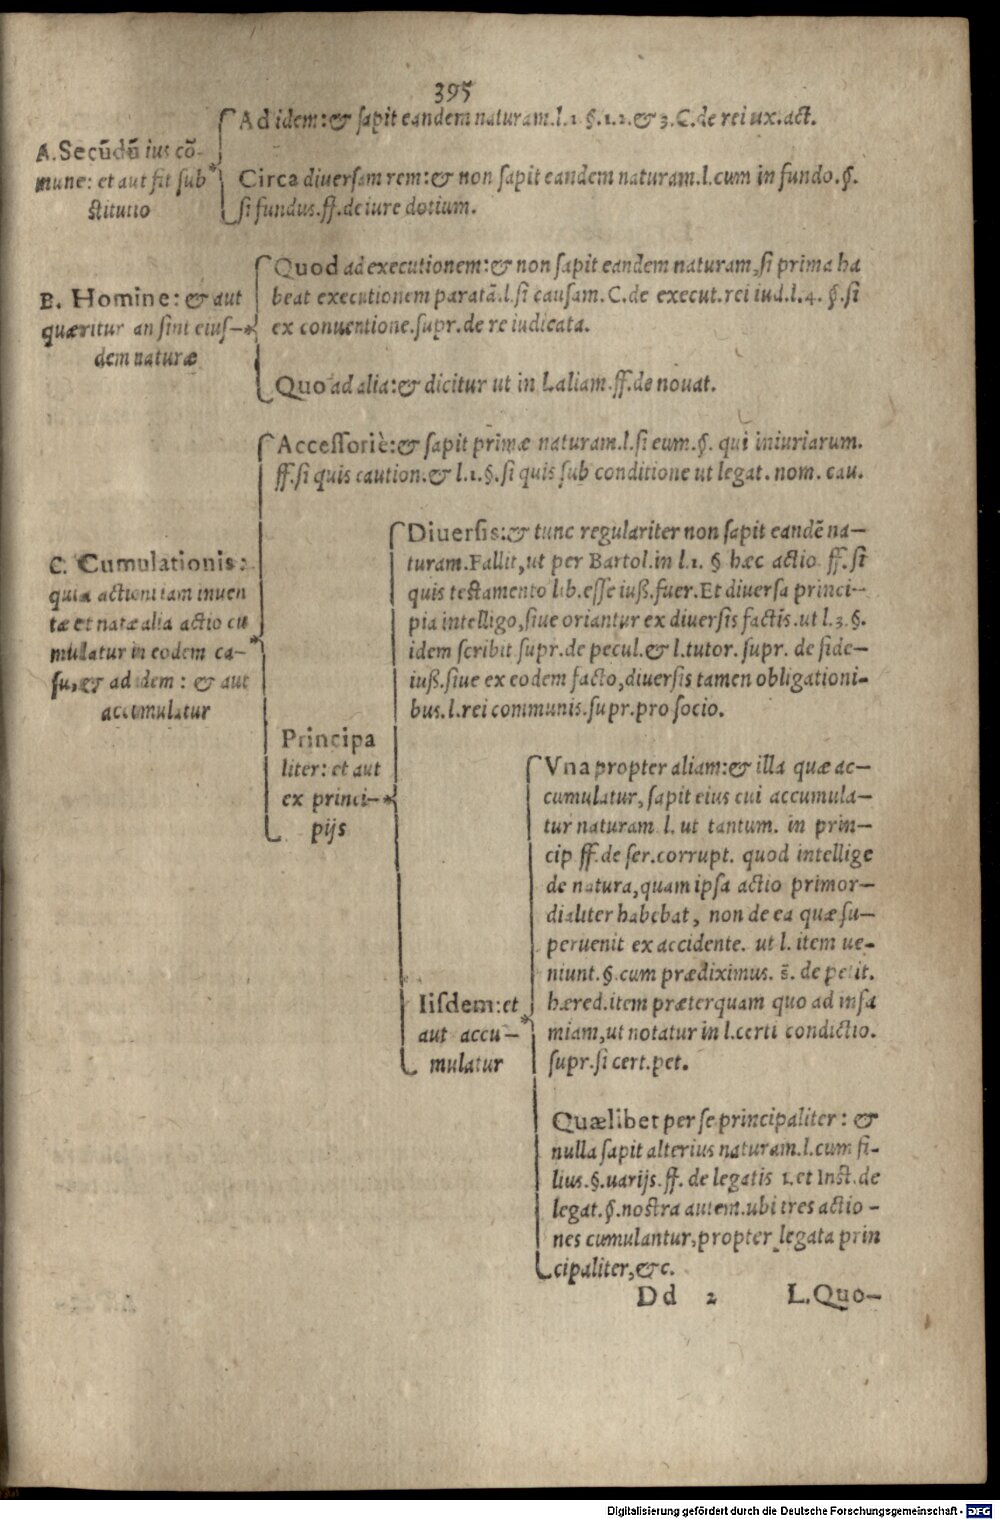 395
A. Secūdū ius cō-
mune: et aut fit sub
stitutio
Ad idem: & sapit eandem naturam.l.1 §.1.2.& 3.C.de rei ux.act.
Circa diversam rem: & non sapit eandem naturam.l.cum in fundo.§.
si fundus.ff.de iure dotium.
B. Homine: & aut
quæritur an sint eius-
dem naturæ
Quod ad executionem: & non sapit eandem naturam, si prima ha
beat executionem paratā.l.si causam.C.de execut.rei iud.l.4.§.si
ex conuentione.supr.de re iudicata.
Quo ad alia: & dicitur ut in l.aliam.ff.de nouat.
C. Cumulationis:
quia actioni tam inuen
tæ et natæ alia actio cu
mulatur in eodem ca-
su, & ad idem: & aut
accumulatur
Accessoriè: & sapit primæ naturam.l.si eum.§. qui iniuriarum.
ff.si quis caution.& l.1.§.si quis sub conditione ut legat. nom. cau.
Principa
liter: et aut
ex princi-
pijs
Diuersis: & tunc regulariter non sapit eandē na-
turam.Fallit, ut per Bartol.in l.1. § hæc actio ff.si
quis testamento lib.esse iuß.fuer.Et diuersa princi-
pia intelligo, siue oriantur ex diuersis factis.ut l.3.§.
idem scribit supr.de pecul.& l.tutor. supr. de fide-
iuß.siue ex eodem facto, diuersis tamen obligationi-
bus.l.rei communis.supr.pro socio.
Iisdem: et
aut accu-
mulatur
Vna propter aliam: & illa quæ ac-
cumulatur, sapit eius cui accumula-
tur naturam l. ut tantum. in prin-
cip ff.de ser.corrupt. quod intellige
de natura, quam ipsa actio primor-
dialiter habebat, non de ea quæ su-
peruenit ex accidente. ut l. item ue-
niunt.§.cum prædiximus. s̄. de petit.
hæred.item præterquam quo ad infa
miam, ut notatur in l.certi condictio.
supr.si cert.pet.
Quælibet per se principaliter: &
nulla sapit alterius naturam.l.cum fi-
lius.§.uarijs.ff. de legatis 1.et Inst.de
legat.§.nostra autem.ubi tres actio-
nes cumulantur, propter legata prin
cipaliter, &c.
Dd 2 L.Quo-
Digitalisierung gefördert durch die Deutsche Forschungsgemeinschaft - DFG